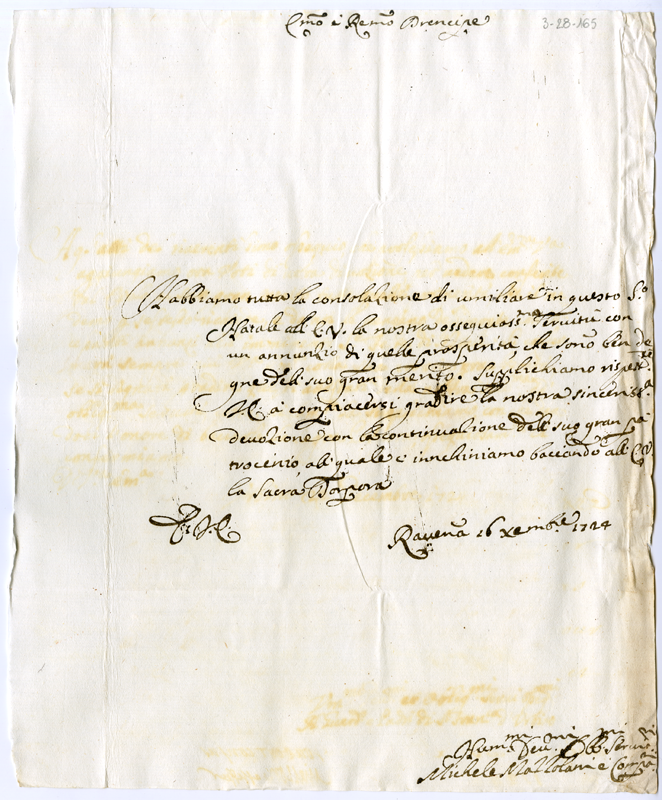 Emo è Remo Prencipe
3-28-165
Habbiamo tutta la consolazione di umiliare in questo S.o
Natale all' E.V. la nostra ossequioss.ma servitù con
un annunzio di quelle prosperità, che sono ben de
gne dell suo gran merito. Supplichiamo rispett.te
V.E. à compiacersi gradire la nostra sinceriss.a
devozione con la continuazione dell suo gran pa
trocenio, al quale c'innchiniamo bacciando all' E.V.
la sacra Porpora
Ravena 16 Xembre 1724
Hum.mi Deu.mi Obb.mi Serui.ri
Michele Mazzolani e Comp.i